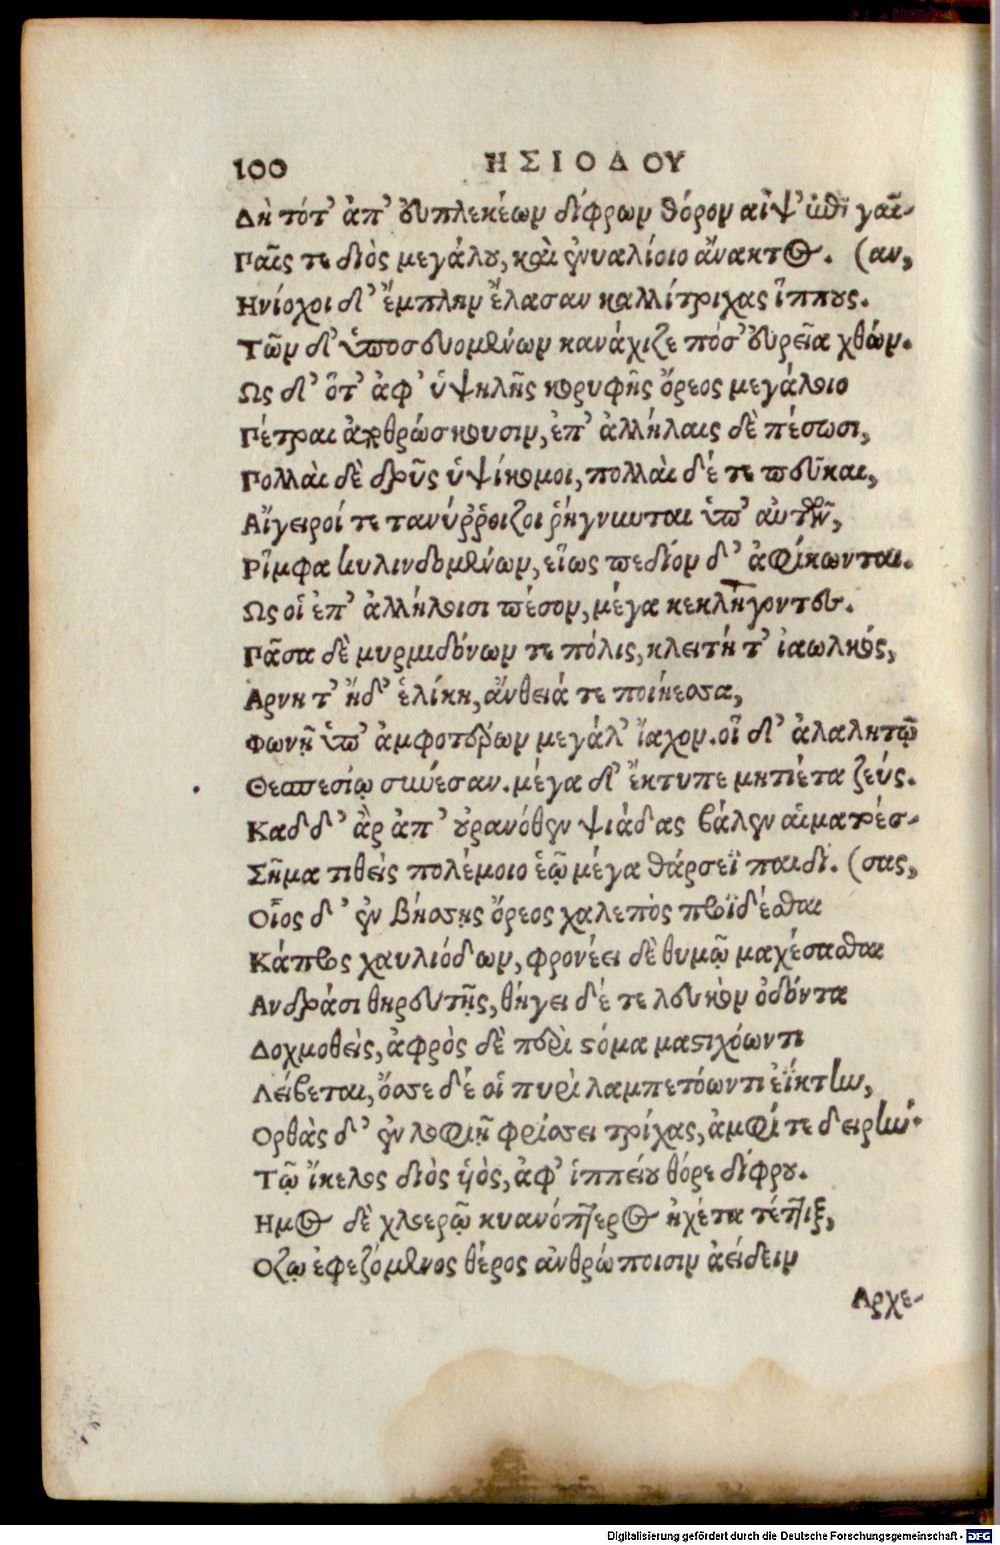 100 ΗΣΙΟΔΟΥ
Δὴ τότ' ἀπ' εὐπλεκέων δίφρων θόρον αἶψ' ἐπὶ γαῖ-
Παῖς τε διὸς μεγάλου, καὶ ἐνυαλίοιο ἄνακτος. (αν,
Ηνίοχοι δ' ἔμπλην ἔλασαν καλλίτριχας ἵππους.
Τῶν δ' ὑποσευομένων κανάχιζε πόσ' εὐρεῖα χθών.
Ως δ' ὅτ' ἀφ' ὑψηλῆς κορυφῆς ὄρεος μεγάλοιο
Πέτραι ἀποθρώσκουσιν, ἐπ' ἀλλήλαις δὲ πέσωσι,
Πολλαὶ δὲ δρῦς ὑψίκομοι, πολλαὶ δέ τε πεῦκαι,
Αἴγειροί τε τανύῤῥιζοι ῥήγνυνται ὑπ' αὐτῶν,
Ρίμφα κυλινδομένων, εἵως πεδίον δ' ἀφίκωνται.
Ως οἱ ἐπ' ἀλλήλοισι πέσον, μέγα κεκλήγοντες.
Πᾶσα δὲ μυρμιδόνων τε πόλις, κλειτή τ' ἰαωλκός,
Αρνη τ' ἠδ' ἑλίκη, ἄνθειά τε ποιήεσσα,
Φωνῇ ὑπ' ἀμφοτέρων μεγάλ' ἴαχον. οἳ δ' ἀλαλητῷ
Θεσπεσίῳ σύνεσαν. μέγα δ' ἔκτυπε μητιέτα ζεύς.
Καδδ' ἂρ ἀπ' οὐρανόθεν ψιάδας βάλεν αἱματοέσ-
Σῆμα τιθεὶς πολέμοιο ἑῷ μέγα θάρσεϊ παιδί. (σας,
Οἷος δ' ἐν βήσσῃς ὄρεος χαλεπὸς προϊδέσθαι
Κάπρος χαυλιόδων, φρονέει δὲ θυμῷ μαχέσασθαι
Ανδράσι θηρευτῇς, θήγει δέ τε λευκὸν ὀδόντα
Δοχμοθείς, ἀφρὸς δὲ περὶ στόμα μαστιχόωντι
Λείβεται, ὄσσε δέ οἱ πυρὶ λαμπετόωντι ἐΐκτην,
Ορθὰς δ' ἐν λοφιῇ φρίσσει τρίχας, ἀμφί τε δειρήν.
Τῷ ἴκελος διὸς υἱὸς, ἀφ' ἱππείου θόρε δίφρου.
Ημος δὲ χλοερῷ κυανόπτερος ἠχέτα τέττιξ,
Οζῳ ἐφεζόμενος θέρος ἀνθρώποισιν ἀείδειν
Αρχε-
Digitalisierung gefördert durch die Deutsche Forschungsgemeinschaft - DFG